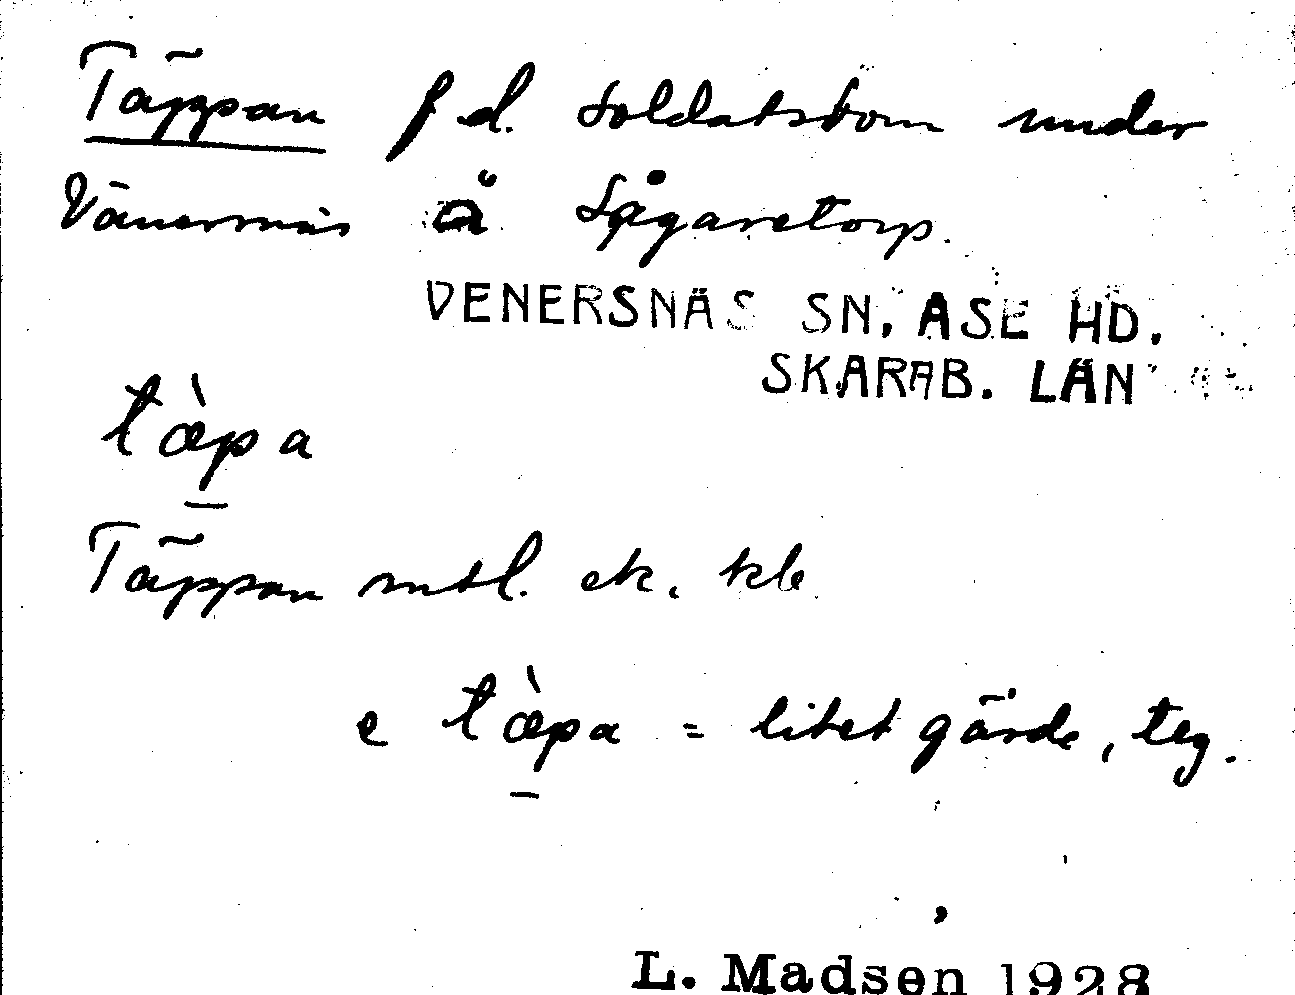 Täppan f. d. soldatsbom under
Vänersnäs å Sågaretorp.
VENERSNÄS SN. ÅSE HD.
SKARAB. LÄN
tæ̀pa
Täppan mtl. ek. kb
e tæ̀pa = litet gärde, teg.
L. Madsen 1928